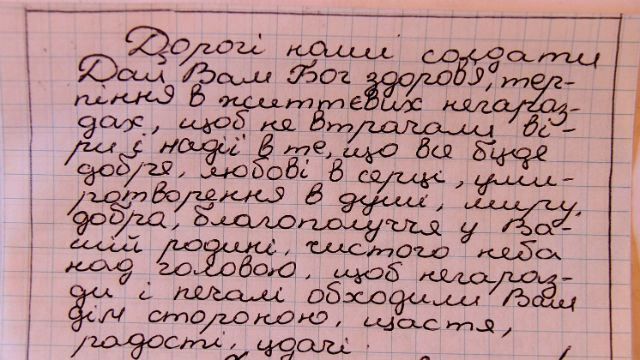 Дорогі наші солдати
Дай Вам Бог здоров'я, тер-
піння в життєвих негараз-
дах, щоб не втрачали ві-
ри і надії в те, що все буде
добре, любові в серці, уми-
ротворення в душі, миру,
добра, благополуччя у Ва-
шій родині, чистого неба
над головою, щоб негараз-
ди і печалі обходили Вам
дім стороною, щастя,
радості, удачі.